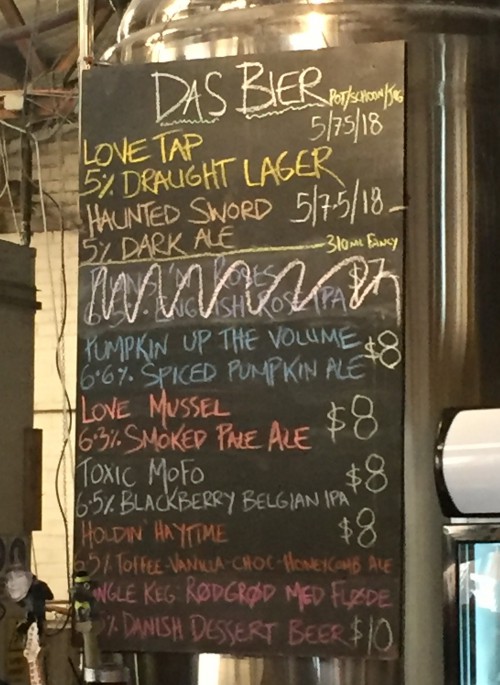 DAS BIER POT/SCHOON/JUG
5/7.5/18
LOVE TAP
5% DRAUGHT LAGER
HAUNTED SWORD 5/7.5/18
5% DARK ALE
310ML FANCY
ROSES $7
ENGLISH ROSE IPA
PUMPKIN UP THE VOLUME $8
6.6% SPICED PUMPKIN ALE
LOVE MUSSEL $8
6.3% SMOKED PALE ALE
TOXIC MOFO $8
6.5% BLACKBERRY BELGIAN IPA
HOLDIN' HAYTIME $8
5% TOFFEE-VANILLA-CHOC-HONEYCOMB ALE
KEG RØDGRØD MED FLØDE
% DANISH DESSERT BEER $10